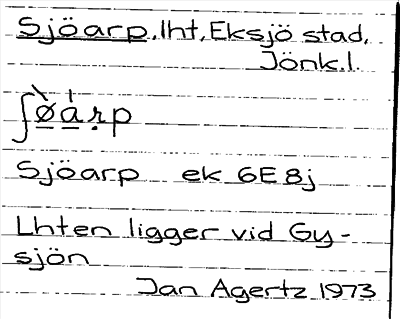 Sjöarp, lht, Eksjö stad,
Jönk.l.
ʃø̱̀á̱ṛp
Sjöarp ek 6E8j
Lhten ligger vid Gy-
sjön
Jan Agertz 1973